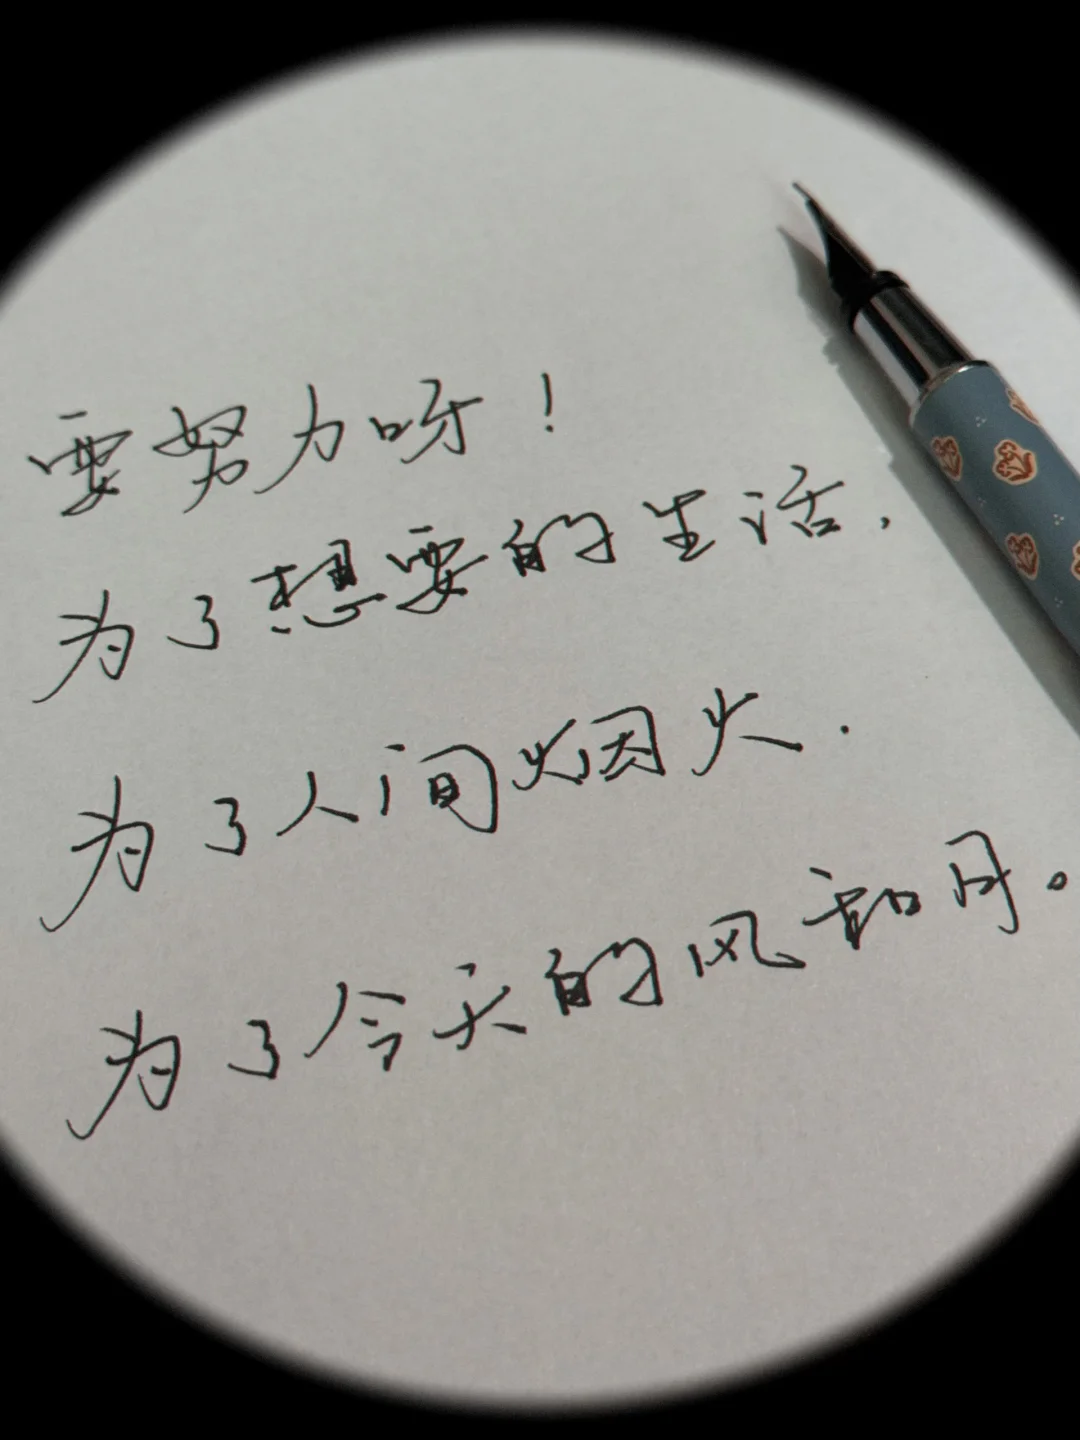 要努力呀！
为了想要的生活，
为了人间烟火．
为了今天的风和月。